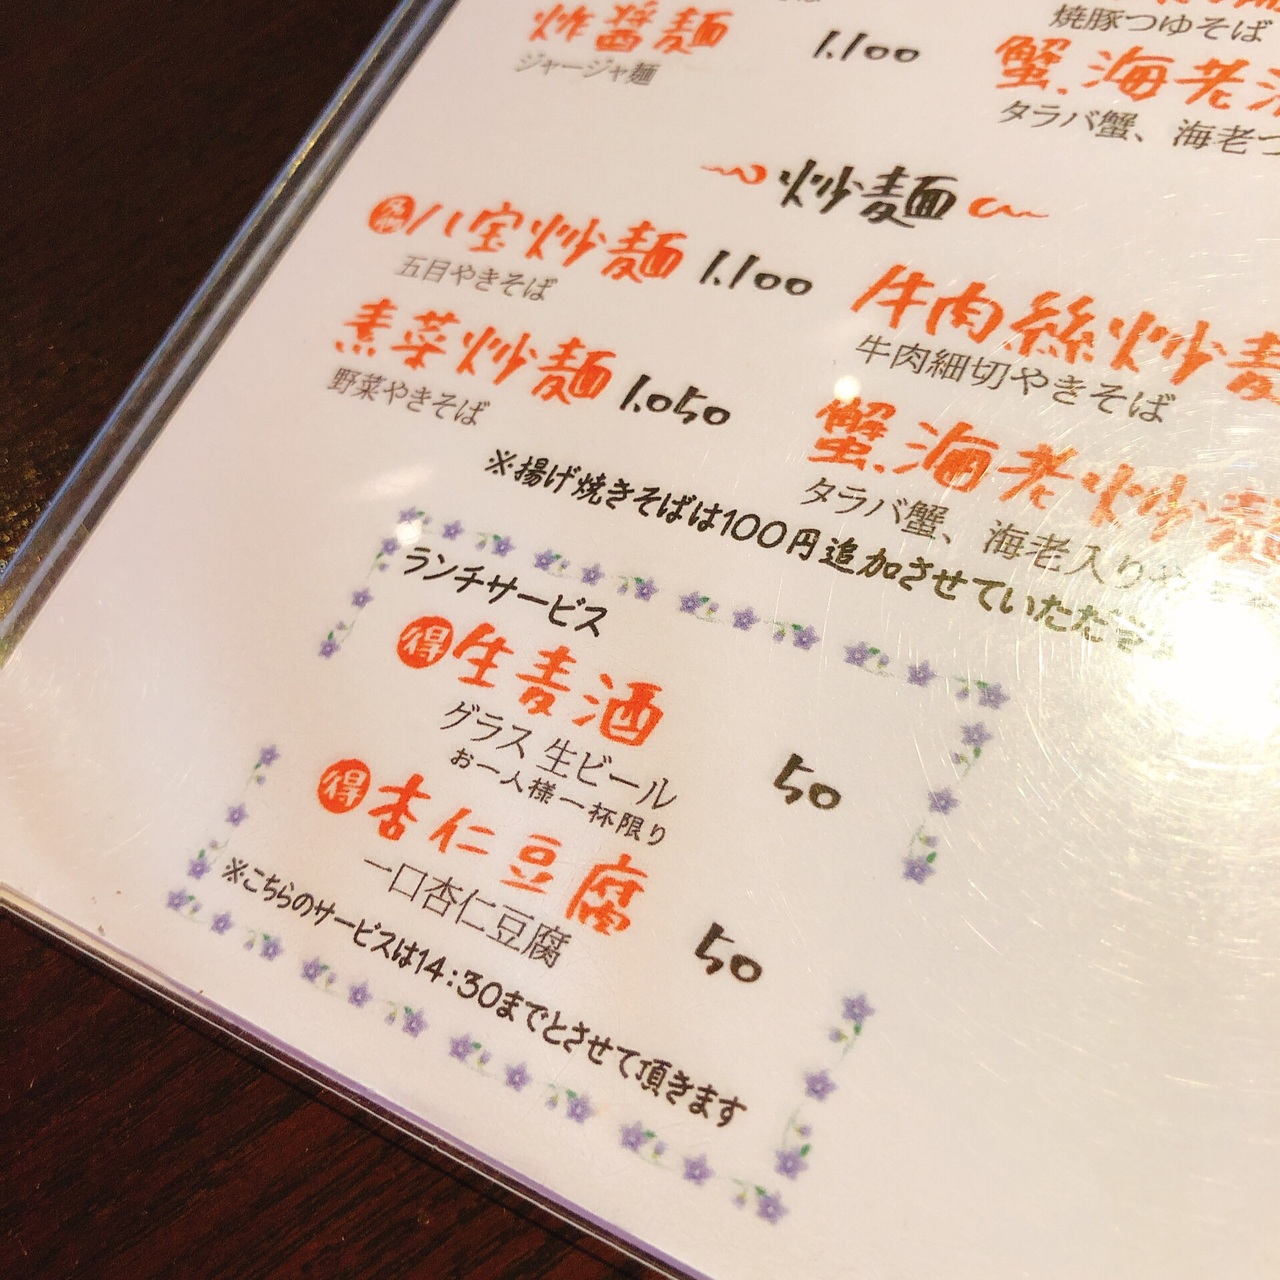 炸醤麺 1.100
ジャージャ麺
焼豚つゆそば
蟹、海老
タラバ蟹、海老つ
炒麺
名物 八宝炒麺 1.100
五目やきそば
素菜炒麺 1.050
野菜やきそば
牛肉絲炒麺
牛肉細切やきそば
蟹、海老炒麺
タラバ蟹、海老入りや
※揚げ焼きそばは100円追加させていただき
ランチサービス
得 生麦酒 50
グラス 生ビール
お一人様一杯限り
得 杏仁豆腐 50
一口杏仁豆腐
※こちらのサービスは14:30までとさせて頂きます